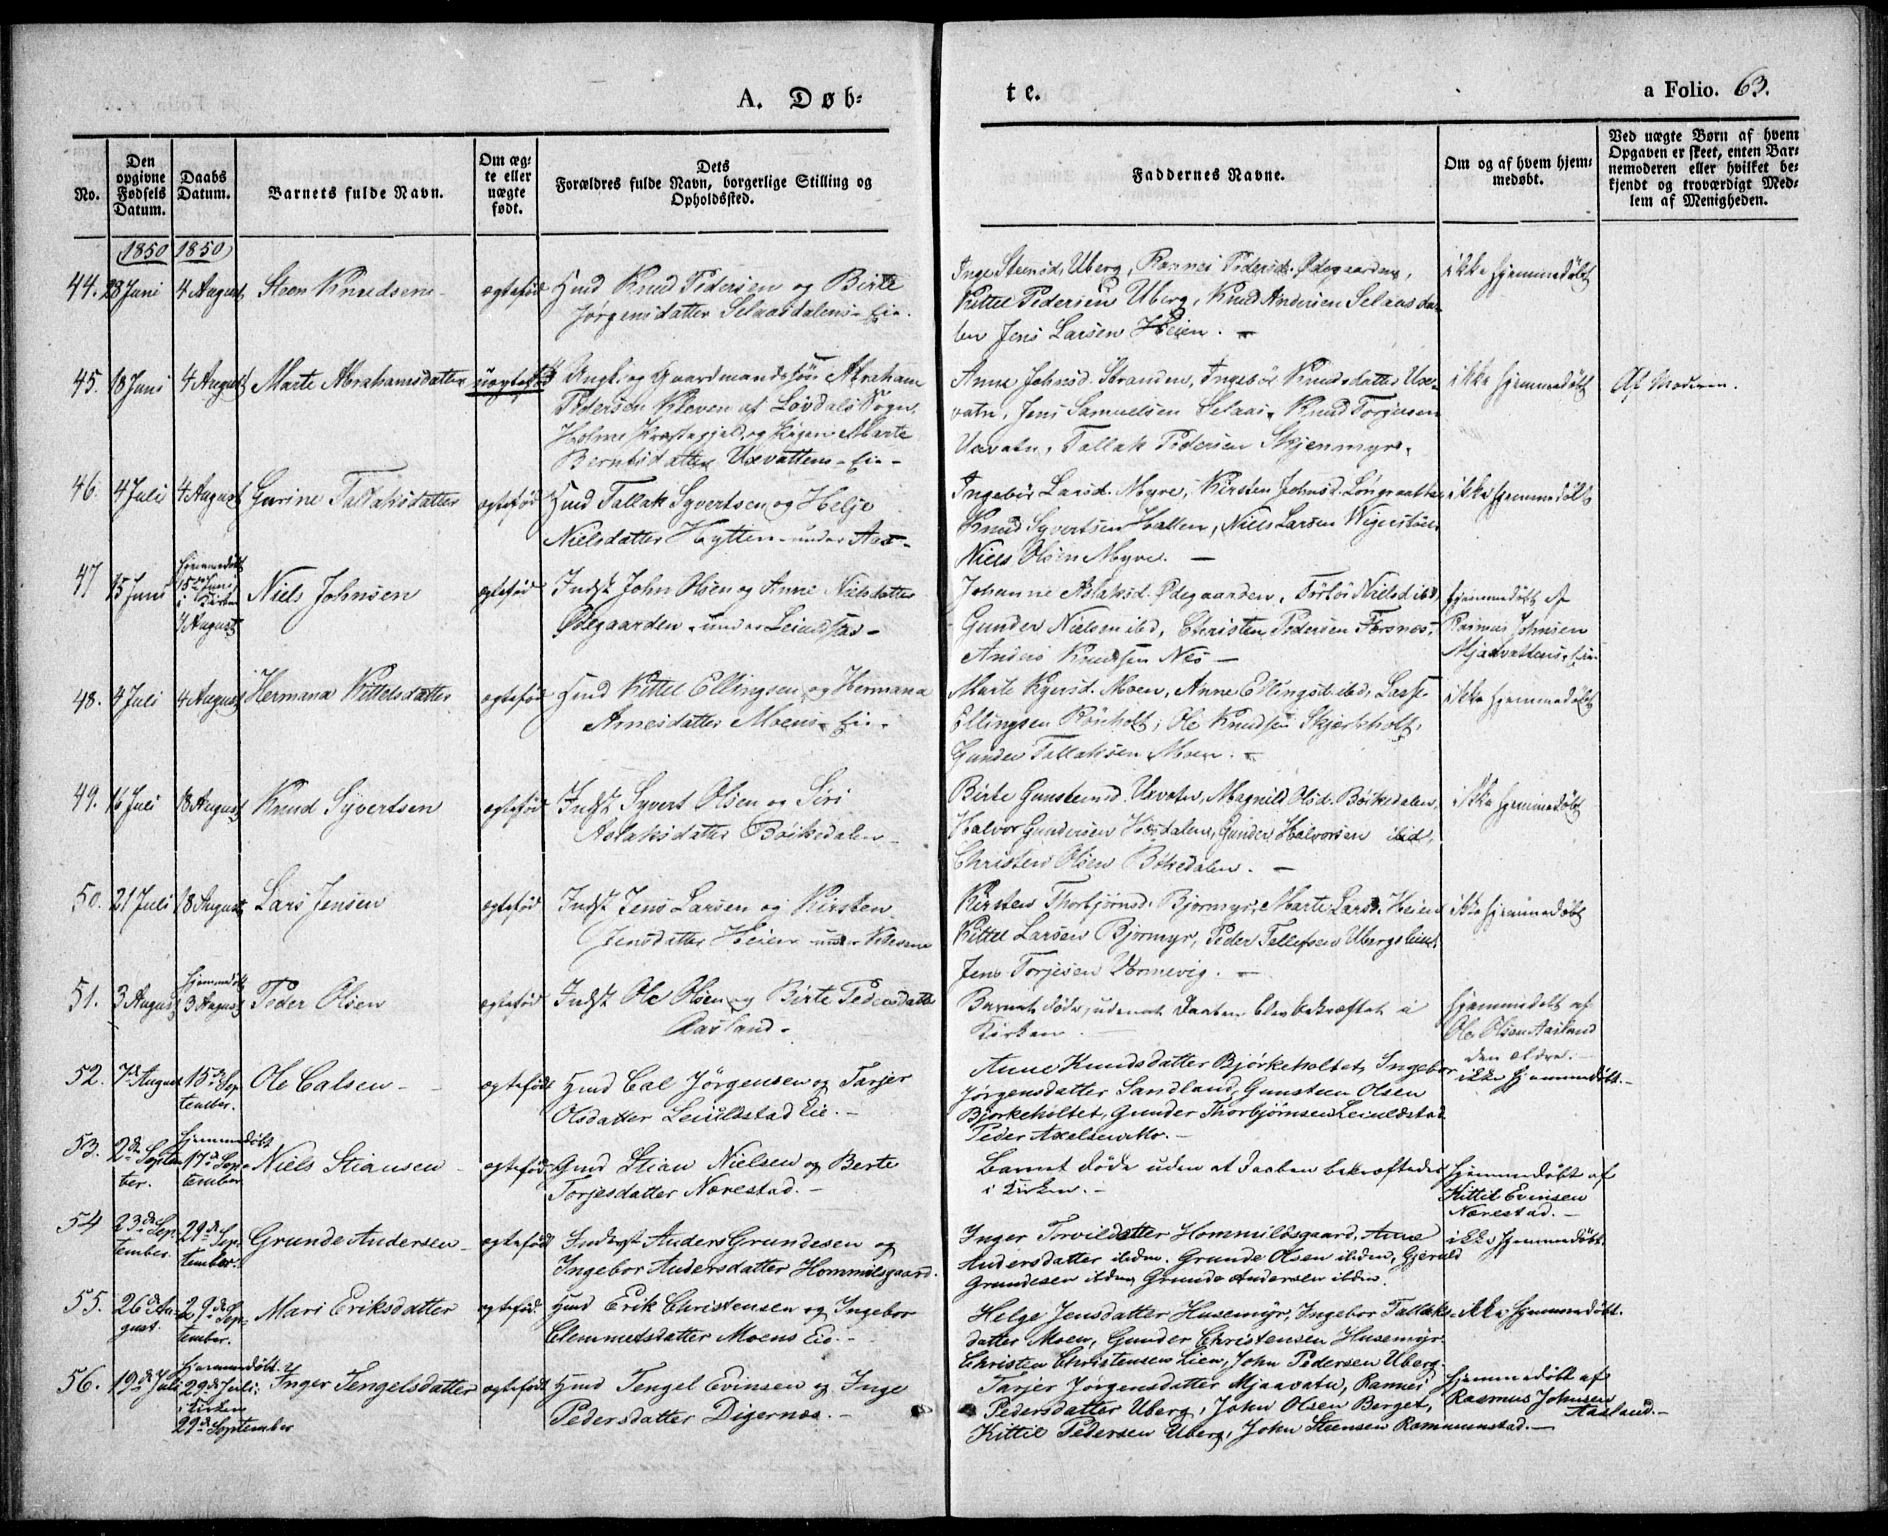 A. Døb-
te.
a Folio. 63.
No.
Den opgivne Fødsels Datum.
Daabs Datum.
Barnets fulde Navn.
Om ægte eller uægte født.
Dets Forældres fulde Navn, borgerlige Stilling og Opholdssted.
Faddernes Navne.
Om og af hvem hjemmedøbt.
Ved uægte Børn af hvem Opgaven er skeet, enten Barnemoderen eller hvilket bekjendt og troværdigt Medlem af Menigheden.
1850 1850
44. 23 Juni 4 August Steen Knudsen ægtefød
Hmd Knud Pedersen og Birte
Jørgensdatter Selaasdalens Eie.
Inge Steensd. Uberg, Rannei Pedersd. Ødegaarden,
Kittel Pedersen Uberg, Knud Andersen Selaasda-
len Jens Larsen Heien. -
ikke hjemmedøbt
45. 18 Juni 4 August Marte Abrahamsdatter uægtefød
Ungk. og Gaardmandssøn Abraham
Pedersen Kleven af Løvdals Sogn,
Holme Præstegjeld, og Pigen Marte
Berntsdatter Uxvattens Eie -
Anne Johnsd. Stranden, Ingebor Knudsdatter Uxe-
vatn, Jens Samuelsen Selaas, Knud Torjusen
Uxvatn, Tallak Pedersen Skjenmyr.
ikke hjemmedøbt
Af Moderen.
46. 4 Juli 4 August Gurine Tallaksdatter ægtefød
Hmd Tallak Syvertsen og Helje
Nielsdatter Hytten under Aas -
Ingebor Larsd. Myre, Kirsten Johnsd.
Knud Syvertsen Hallen, Niels Larsen
Niels Olsen Myre. -
ikke hjemmedøbt
47 15 Juni hjemmedøbt
15de Juni
i Kirken
4 August Niels Johnsen ægtefød
Indst John Olsen og Anne Nielsdatter
Ødegaarden under
Johanne Aslaksd. Ødegaarden, Nielsd ibd
Gunder Nielsen ibd, Christen Pedersen Forsnes,
Anders Knudsen Nes -
hjemmedøbt af
Rasmus Johnsen
Mjaavattens Eie
48. 4 Juli 4 August Hermana Kittelsdatter ægtefød
Hmd Kittel Ellingsen og Hermana
Arnesdatter Moens Eie.
Marte Moen, Anne Ellingsd. ibd, Lasse
Ellingsen Bönholt, Ole Knudsen Skjerkholt,
Gunder Tallaksen Moen. -
ikke hjemmedøbt
49. 16 Juli 18 August Knud Syvertsen ægtefød
Indst Syvert Olsen og Siri
Aslaksdatter Böikedalen -
Birte Gunsteinsd. Uxvatn, Magnild Olsd. Böikedalen,
Halvor Gundersen Gunder Halvorsen ibid,
Christen Olsen Bökedalen. -
ikke hjemmedøbt
50. 21 Juli 18 August Lars Jensen ægtefød
Indst Jens Larsen og Kirsten
Jensdatter Heien under
Kirsten Thorbjörnsd. Bjormyr, Marte Larsd. Heien
Kittel Larsen Bjormyr, Peder Tellefsen
Jens Torjesen Vormevig. -
ikke hjemmedøbt
51. 3 August hjemmedøbt
3 August Peder Olsen ægtefød
Indst Ole Olsen og Birte Pedersdatter
Aasland.
Barnet døde, uden at Daaben blev bekræftet i
Kirken.
hjemmedøbt af
Ole Olsen Aasland
den ældre. -
52. 7de August 15de Sep-
tember. Ole Calsen - ægtefødt
Hmd Cal Jörgensen og Tarjer
Olsdatter Leiulstad Eie. -
Anne Knudsdatter Bjørkeholtet, Ingebor
Jörgensdatter Sandland, Gunsteen Olsen
Bjørkeholtet, Gunder Thorbjörnsen Leiulstad
Peder Axelsen Mo. -
ikke hjemmedøbt. -
53. 2de Septem-
ber. hjemmedøbt
17de Sep-
tember Niels Stiansen ægtefødt
Gmd Stian Nielsen og Berte
Torjesdatter Nærestad. -
Barnet døde uden at Daaben bekræftedes
i Kirken. -
hjemmedøbt af
Kittil Evinsen
Nærestad. -
54 23de Sep-
tember. 29de Sep-
tember. Grunde Andersen ægtefødt
Inderst Anders Grundesen og
Ingebor Andersdatter Hommilsgaard.
Inger Torvildatter Hommildsgaard, Anne
Andersdatter ibdm. Grunde Olsen ibdm, Gjeruld
Grundesen ibdm, Grunde Andersen ibdm.
ikke hjemmedøbt.
55. 26de Au-
gust. 29de Sep-
tember. Mari Eriksdatter ægtefød.
Hmd Erik Christensen og Ingebor
Clemmetsdatter Moens Eie. -
Helge Jensdatter Husemyr, Ingebor Tallaks-
datter Moen, Gunder Christensen Husemyr.
Christen Christensen Lien, John Pedersen Uberg.
ikke hjemmedøbt.
56. 19de Juli hjemmedøbt.
29de Juli.
i Kirken
29de September Inger Tengelsdatter ægtefødt
Hmd Tengel Evinsen og Inge
Pedersdatter Digernes. -
Tarjer Jörgensdatter Mjaavatn, Rannei
Pedersdatter Uberg, John Olsen Berget,
Kittil Pedersen Uberg, John Steensen Rommunstad. -
hjemmedøbt af
Rasmus Johnsen
Aasland. -